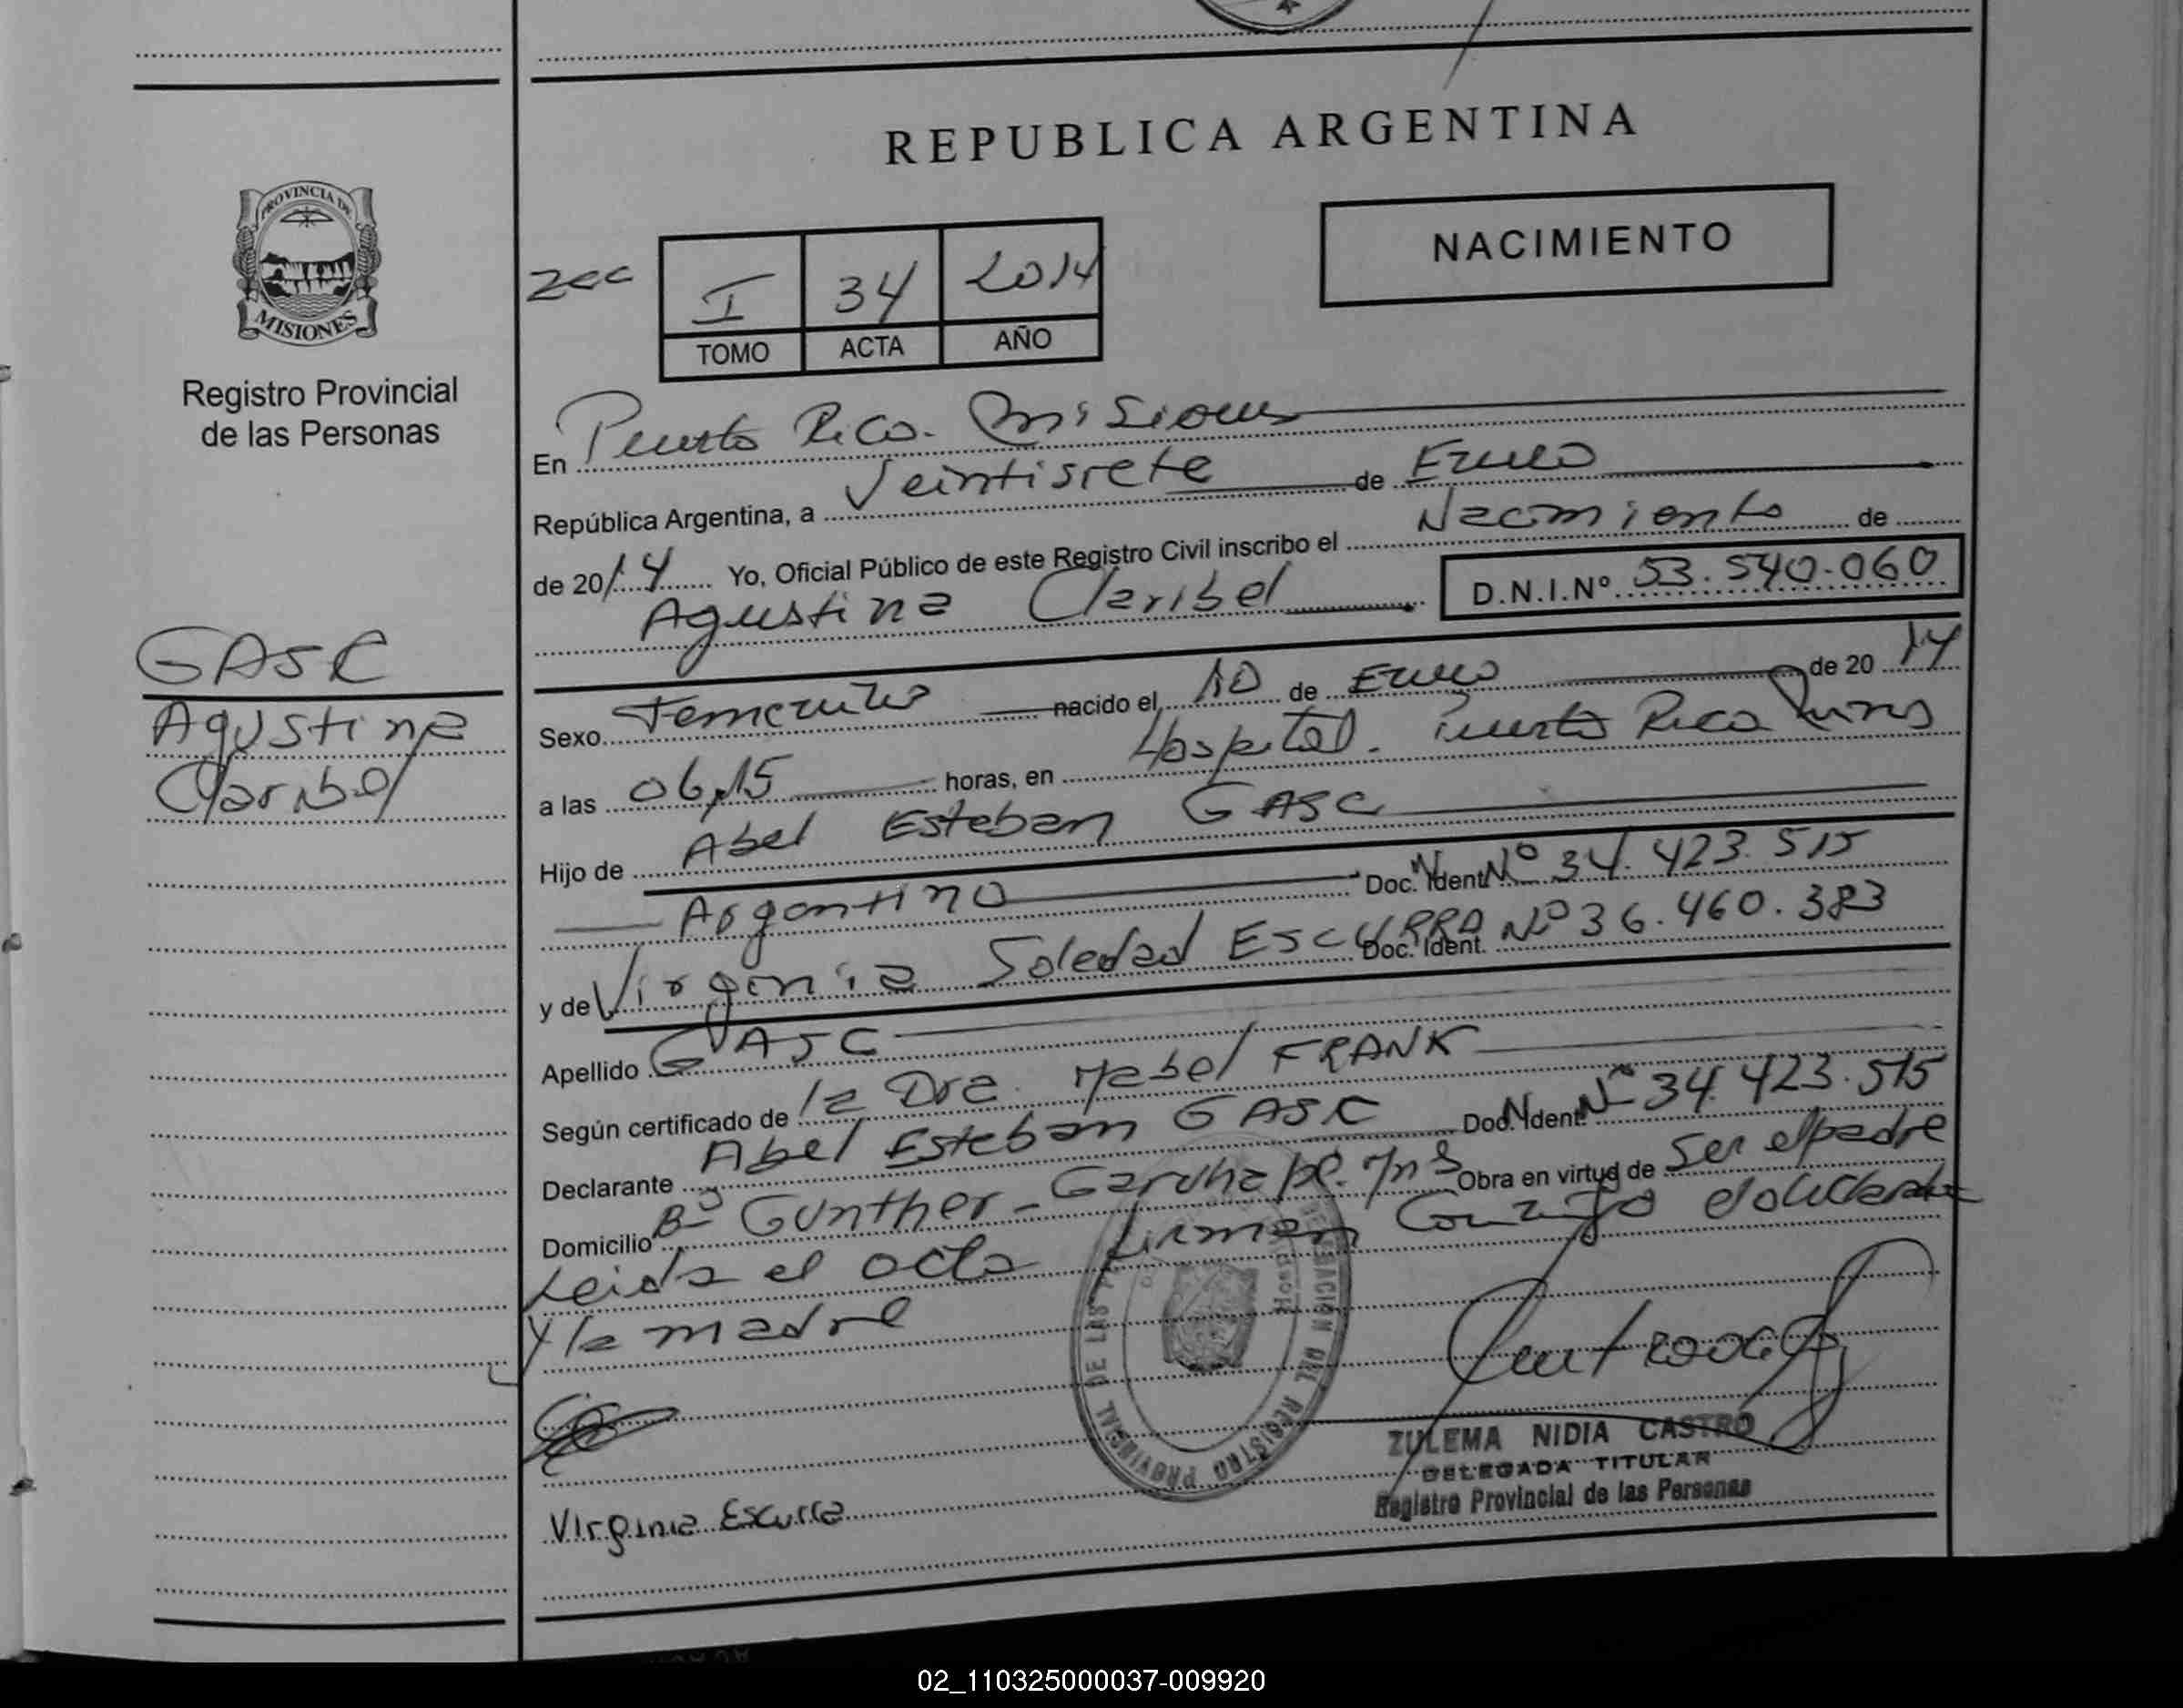 REPUBLICA ARGENTINA
PROVINCIA DE
MISIONES
Registro Provincial
de las Personas
NACIMIENTO
I 34 2014
TOMO ACTA AÑO
En Puerto Rico. Misiones
República Argentina, a Veintisiete de Enero
de 2014 Yo, Oficial Público de este Registro Civil inscribo el Nacimiento de
Agustina Claribel D.N.I.Nº 53.540.060
GASC
Agustina
Claribel
Sexo Femenino nacido el 10 de Enero de 2014
a las 06,15 horas, en Hospital. Puerto Rico
Hijo de Abel Esteban GASC
Argentino Doc. Ident. Nº 34.423.515
y de Virginia Soledad ESCURRA Doc. Ident. Nº 36.460.383
Apellido GASC
Según certificado de la Dra. Mabel FRANK
Declarante Abel Esteban GASC Doc. Ident. Nº 34.423.515
Domicilio Bº Gunther - Garuhapé. Mns Obra en virtud de ser el padre
Leida el acta firman conmigo el declarante
y la madre
ZULEMA NIDIA CASTRO
DELEGADA TITULAR
Registro Provincial de las Personas
Virginia Escurra
02_110325000037-009920